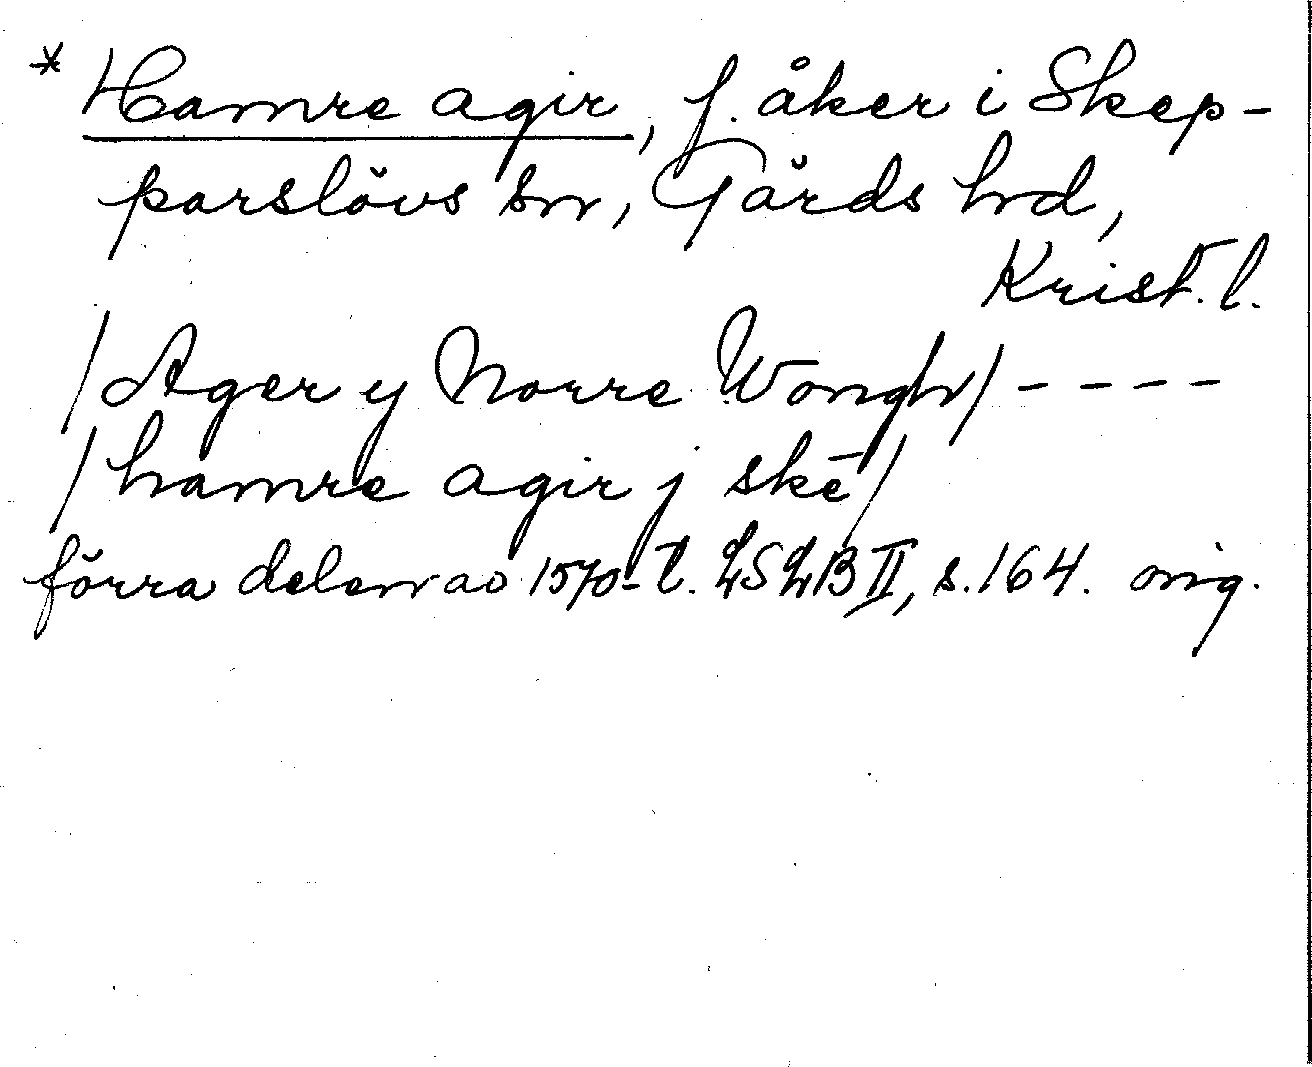 * Hamre agir, f. åker i Skep-
parslövs sn, Gärds hd,
Krist. l.
/Ager y Norre Wongh/ - - - -
/hamre agir j skē/
förra delen av 1570-t. LSLB II, s. 164. orig.